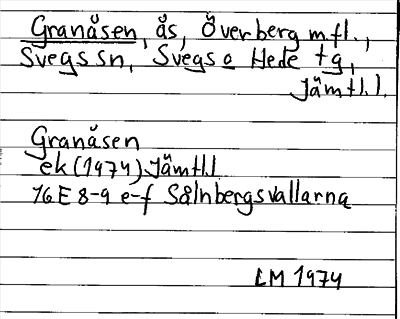 Granåsen, ås, Överberg m.fl.,
Svegs sn, Svegs o Hede tg,
Jämtl. l.
Granåsen
ek (1974) Jämtl. l
16E 8-9 e-f Sålnbergsvallarna
LM 1974